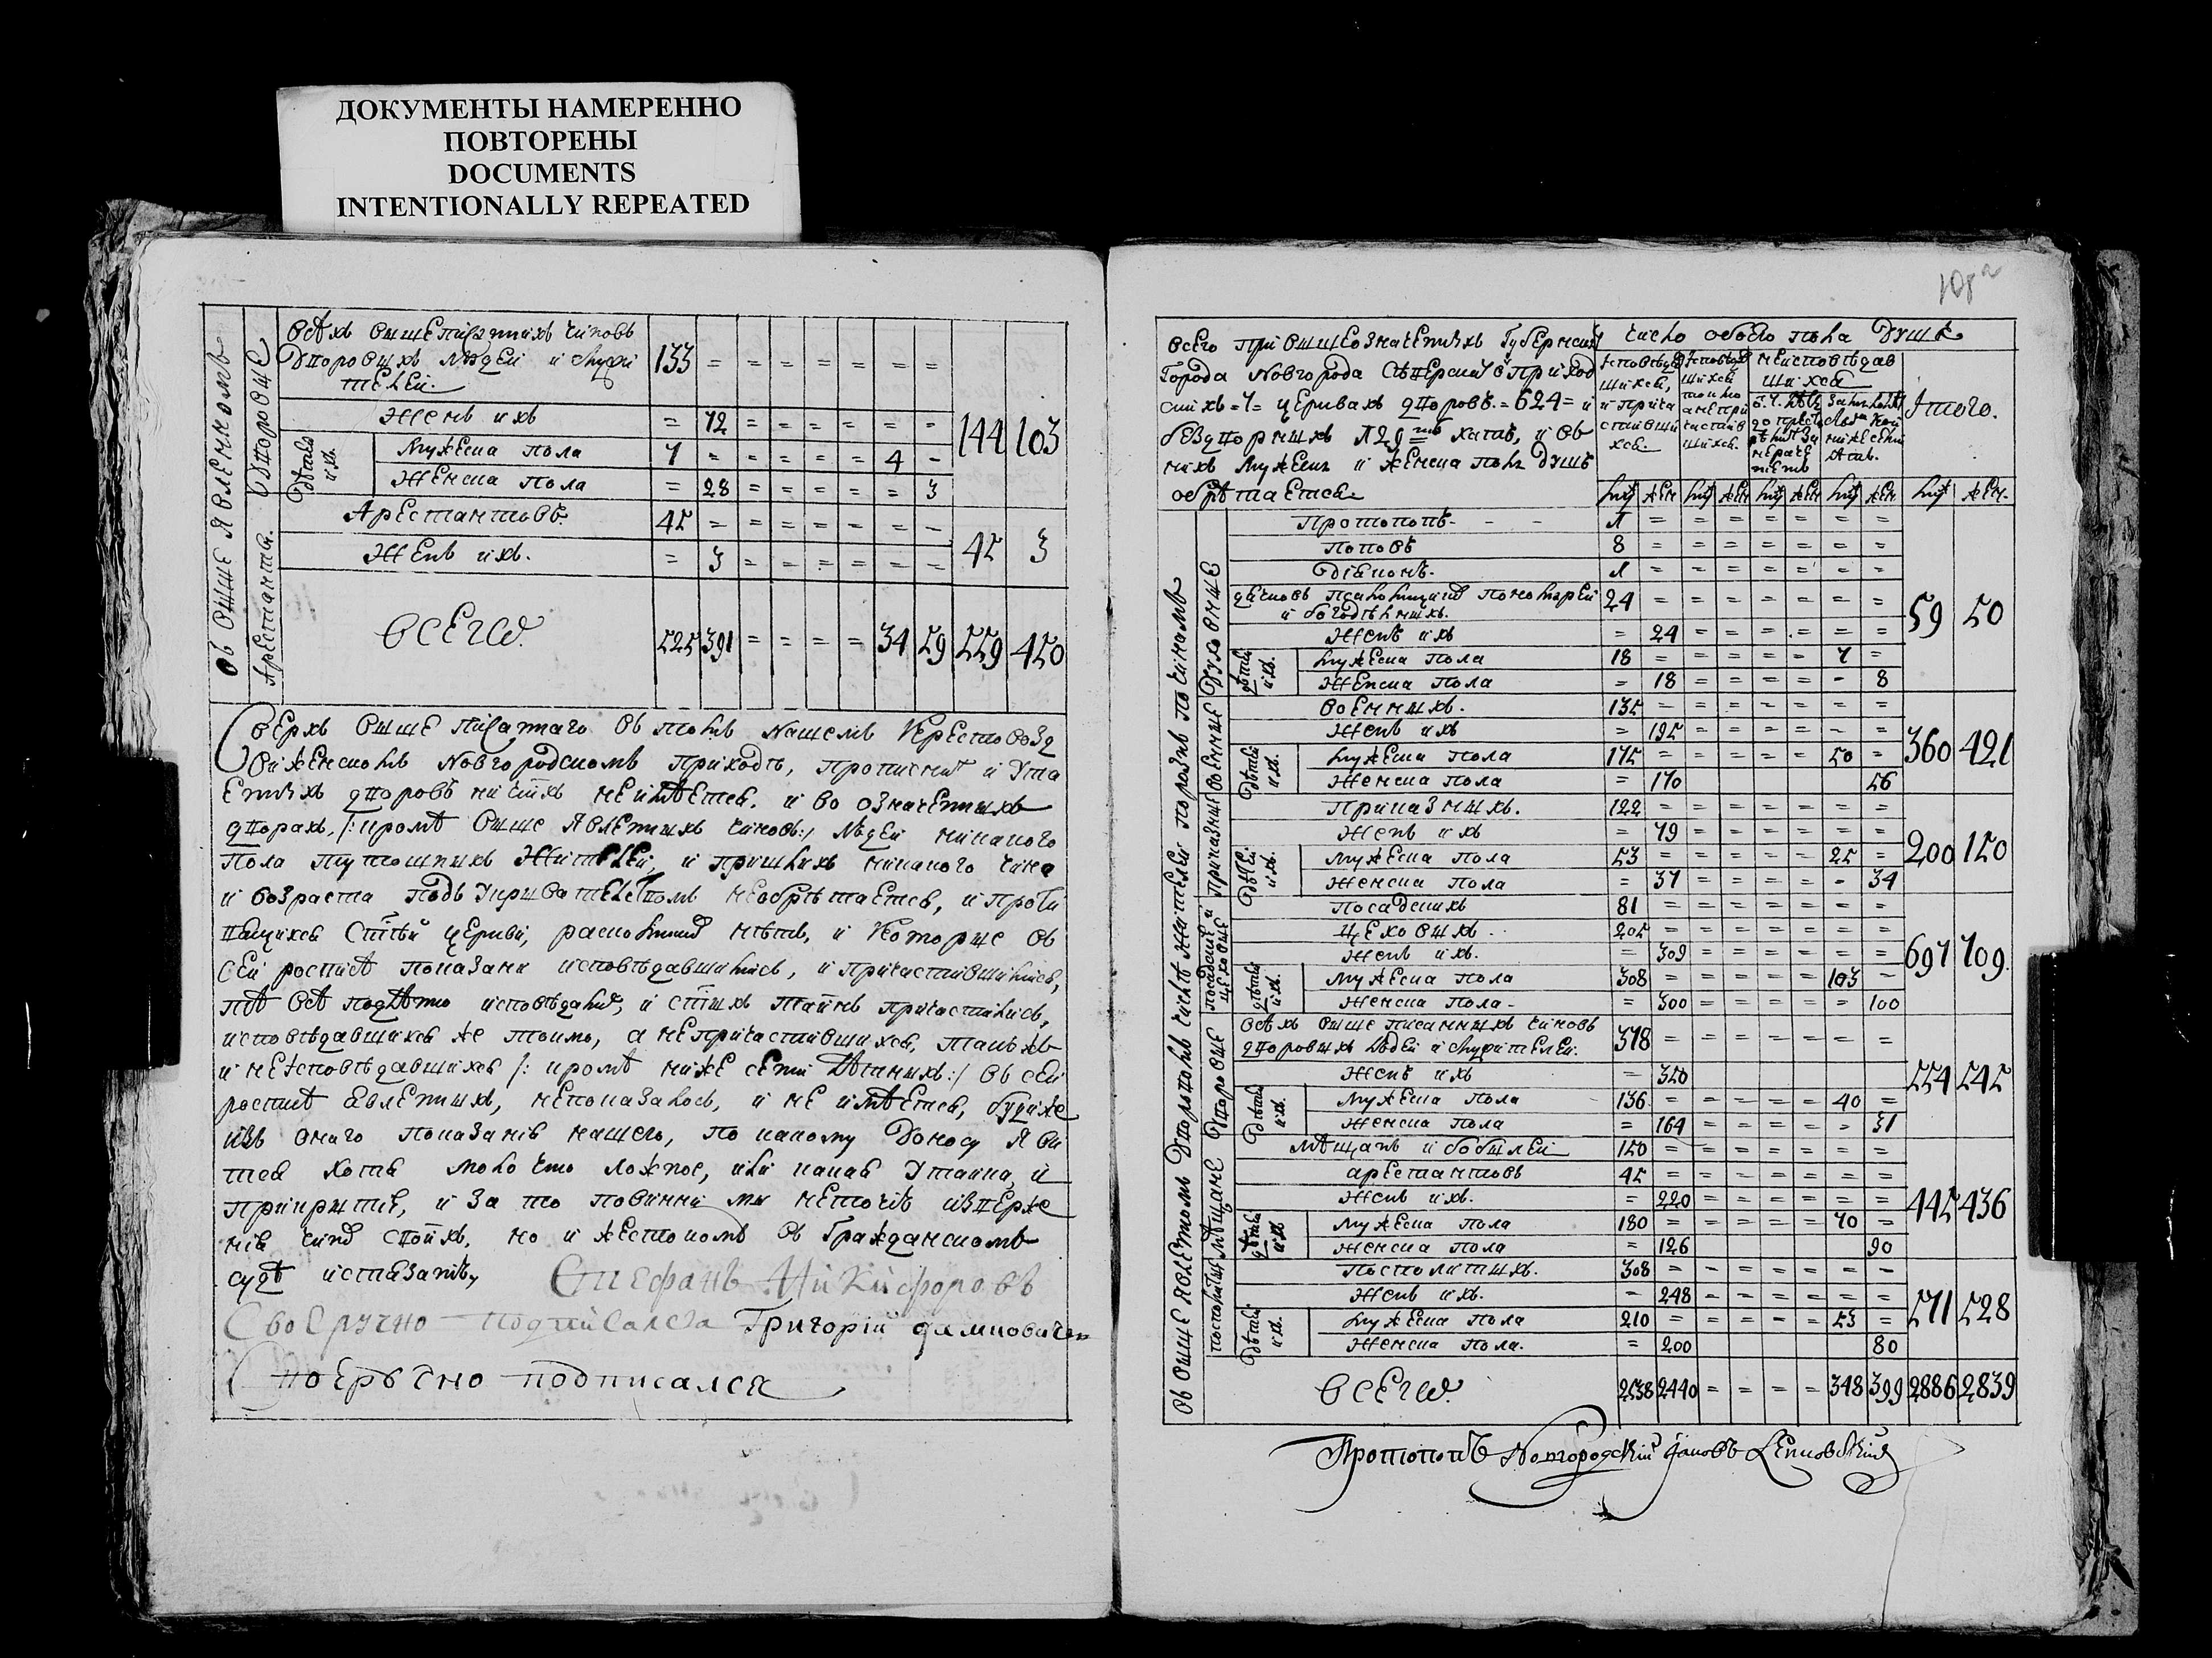 ДОКУМЕНТЫ НАМЕРЕННО
ПОВТОРЕНЫ
DOCUMENTS
INTENTIONALLY REPEATED
въ выше явленномъ
дворовые
Арестанты.
всѣхъ вышеписанныхъ чиновъ
дворовыхъ людей и служи
телей. 133 = = = = = = =
женъ ихъ = 72 = = = = = =
дѣтей ихъ.
Мужеска пола 7 = = = = = 4 =
Женска пола = 28 = = = = = 3
144 103
Арестантовъ. 45 = = = = = = =
Женъ ихъ. = 3 = = = = = =
45 3
всегѡ. 525 391 = = = = 34 59 559 450
Сверхъ выше писаннаго въ томъ нашемъ Крестовозд
виженскомъ Новгородскомъ приходѣ, прописныхъ и ута
енныхъ дворовъ никакихъ неимѣется. и во означенныхъ
дворахъ, /: кромѣ выше явленныхъ чиновъ :/ людей никакого
пола тутошныхъ жителей, и пришлыхъ никакого чина
и возраста подъ укрывательствомъ необрѣтается, и проти
вящихся святѣй церкви, расколниковъ нѣтъ, и которые въ
сей росписѣ показаны исповѣдавшимись, и причастившимись,
тѣ всѣ подлѣнно исповѣдались, и святыхъ таинъ причастились,
исповѣдавшихся же токмо, а непричастившихся, такъ же
и неисповѣдавшихся /: кромѣ ниже седми лѣтныхъ :/ въ сей
росписѣ явленныхъ, непоказалось, и не имѣется, буде же
изъ онаго показанія нашего, по какому доносу яви
тся хотя мало что ложное, или какая утайка, и
прикрытіе, и за то повинни мы неточію изверже
нія чиновъ своихъ, но и жестокомѣ въ гражданскомъ
судѣ истязанію,
Стефанъ Никифоровъ
Своеручно подписался Григорій
Своеручно подписался
108
всего при вышеозначенныхъ Губерскихъ
Города Новгорода Сѣверскаго приход
скихъ = 7 = церквахъ дворовъ. = 624 = и
бездворныхъ хатъ, и въ
нихъ мужеска и женска пола душъ
обрѣтается.
число обоего пола душъ
Исповѣдав
шихся,
и прича
стивши
хся.
Исповѣдав
шихся
токмо
а непри
частив
шихся.
неисповѣдав
шихся
Итого.
муж жен муж жен муж жен муж жен муж жен.
въ выше явленномъ
духовные
Протопопъ. 1 = = = = = = =
поповъ 8 = = = = = = =
діаконъ. 1 = = = = = = =
дячковъ поломарей
и богодѣлныхъ. 24 = = = = = = =
женъ ихъ = 24 = = = = = =
дѣтей ихъ.
мужеска пола 18 = = = = = 7 =
женска пола = 18 = = = = = 8
59 50
военные
военныхъ. 135 = = = = = = =
женъ ихъ = 195 = = = = = =
дѣтей ихъ.
мужеска пола 175 = = = = = 50 =
женска пола = 170 56
360 421
приказные
Приказныхъ. 122 = = = = = = =
женъ ихъ = 79 = = = = = =
дѣтей ихъ.
мужеска пола 53 = = = = = 25 =
женска пола = 37 = = = = = 34
200 150
посадскіе и
цеховые
посадскихъ 81 = = = = = = =
цеховыхъ. 205 = = = = = = =
женъ ихъ. = 309 = = = = = =
дѣтей ихъ.
мужеска пола 308 = = = = = 103 =
женска пола. = 300 = = = = = 100
697 709.
дворовые
всѣхъ выше писанныхъ чиновъ
дворовыхъ людей и служителей. 378 = = = = = = =
женъ ихъ = 350
дѣтей ихъ.
мужеска пола 136 = = = = = 40 =
женска пола = 164 = = = = = 31
554 545
мѣщане
мѣщанъ и бобылей 150 = = = = = = =
арестантовъ 45 = = = = = = =
женъ ихъ. = 220 = = = = = =
дѣтей ихъ
мужеска пола 180 = = = = = 70 =
женска пола = 126 90
445 436
посполитые
посполитыхъ. 308 = = = = = = =
женъ ихъ. = 248 = = = = = =
дѣтей ихъ.
мужеска пола 210 = = = = = 53 =
женска пола. = 200 80
571 528
всегѡ. 2538 2440 = = = = 348 399 2886 2839
Протопопъ Новгородскій